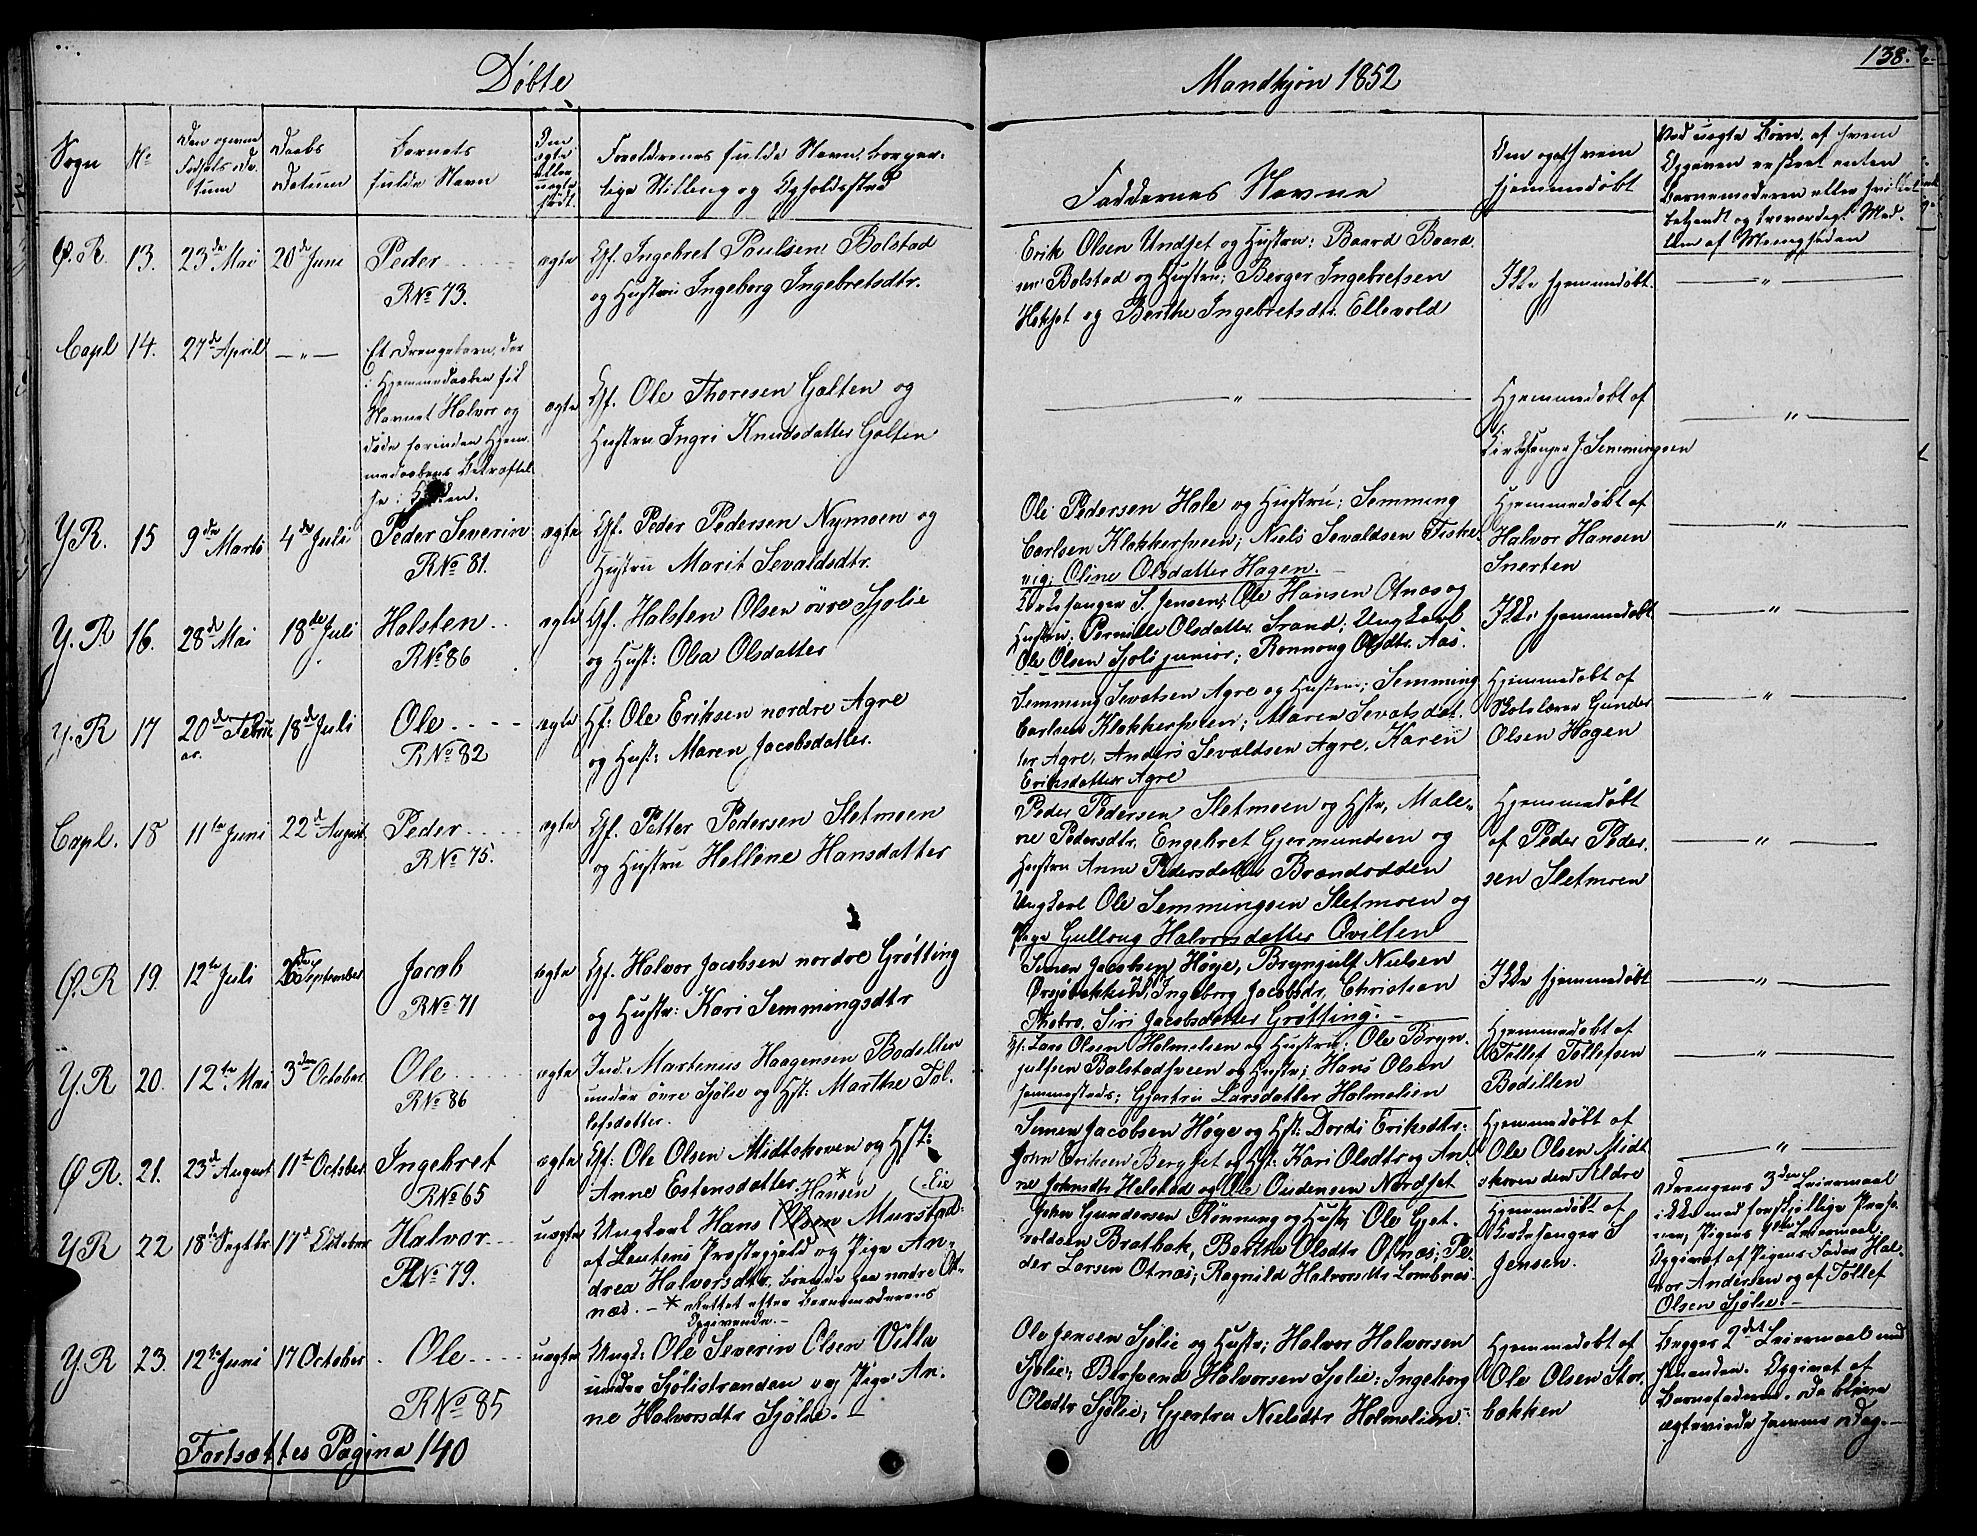 Døbte
Mandkjøn 1852
138.
Sogn
No
Den opgivne Fødsels Datum
Daabs Datum
Barnets fulde Navn
Om ægte eller uægte født.
Forældrenes fulde Navn, borgerlige Stilling og Opholdssted
Faddernes Navne
Om og af hvem hjemmedøbt
Ø.R 13. 23de Mai 20de Juni Peder ægte Gf. Ingebret Poulsen Bolstad
R No 73. og Hustru Ingeborg Ingebretsdtr.
Erik Olsen Undset og Hustru; Baard Baard
sen Bolstad og Hustru; Berger Ingebretsen
og Berthe Ingebretsdtr. Ellevold
Ikke hjemmedøbt.
Capl 14. 27de April — " — Et Drengebarn, der
i Hjemmedaaben fik
Navnet Halvor og
døde forinden Hjem
medaabens Bekræftel
se i Kirken.
ægte Gf. Ole Thoresen Galten og
Hustru Ingri Knudsdatter Galten
Hjemmedøbt af
Kirkesanger J. Semmingsen
Y.R. 15 9de Marts 4de Juli Peder Severin ægte Gf. Peder Pedersen Nymoen og
R No 81. Hustru Marit Sevaldsdtr.
Ole Pedersen Hole og Hustru; Semming
Carlsen Klokkerhveen; Niels Sevaldsen Fiske
vig; Oline Olsdatter Hagen.
Hjemmedøbt af
Halvor Hansen
Snerten
Y.R 16. 28de Mai 18de Juli Halsten ægte Gf. Halsten Olsen øvre Sjølie
R No 86 og Hust: Olea Olsdatter
Kirkesanger S. Jensen; Ole Hansen Otnæs og
Hustru; Pernille Olsdatter Strand; Ungkarl
Ole Olsen Sjøli junior; Rønnoug Olsdtr. Aas.
Ikke hjemmedøbt
Y.R 17 20de Febru
ar. 18de Juli Ole ægte Gf: Ole Eriksen nordre Agre
R No 82 og Hust: Maren Jacobsdatter.
Semming Sevatsen Agre og Hustru; Semming
Carlsen Klokkerhveen; Maren Sevatsdat
ter Agre, Anders Sevaldsen Agre, Karen
Eriksdatter Agre
Hjemmedøbt af
Skolelærer Gunder
Olsen Hagen
Capl. 18 11te Juni 22de August Peder ægte Gf. Petter Pedersen Sletmoen
R No 75. og Hustru Hellene Hansdatter
Peder Pedersen Sletmoen og Hst, Male
ne Pedersdtr. Engebret Gjermundsen og
Hustru Anne Pedersdatter Brændodden
Ungkarl Ole Semmingsen Sletmoen og
Pige Gulloug Halvorsdatter Qvilten
Hjemmedøbt
af Peder Peder
sen Sletmoen
Ø.R 19. 12te Juli 26de September Jacob ægte Gf. Halvor Jacobsen nordre Grøtting
R No 71 og Hustr: Kari Semmingsdtr
Simen Jacobsen Høye, Bryngulf Nielsen
Ingeborg Jacobsdtr. Christian
Thobro, Siri Jacobsdatter Grøtting.
Ikke hjemmedøbt
Y.R 20. 12te Mai 3die October Ole ægte Ind. Martenus Haagensen Bodilten
R No 86 under øvre Sjølie og Hst: Marthe Tol
lefsdatter.
Gf: Lars Olsen Holmelien og Hustru: Ole Bryn
julfsen Bolstadhveen og Hustr; Hans Olsen
Gjertru Larsdatter Holmelien
Hjemmedøbt af
Tollef Tollefsen
Bodilten
Ø.R. 21. 23de August 11te October Ingebret ægte Gf: Ole Olsen Midtskoven og Hst:
R No 65 Anne Estensdatter
Simen Jacobsen Høye og Hst: Dordi Eriksdtr:
John Eriksen Bergset og Hst: Kari Olsdtr og An
ne Johnsdtr Helstad og Ole Oudensen Nordset
Hjemmedøbt af
Ole Olsen Midt
skoven den Ældre
Y.R 22 18de Septbr 17de October Halvor uægte Ungkarl Hans Olsen * Hansen Murstad
R No 79. af Leutens Præstegjeld og Pige An
drea Halvorsdtr. boende paa nordre Ot
næs. — * Rettet efter Barnemoderens
Opgivende. —
John Gundersen Rønning og Hust; Ole Gjet
voldsen Bratbak, Berthe Olsdtr Otnæs; Pe
der Larsen Otnæs; Ragnild Halvorsdtr Lombnæs
Hjemmedøbt af
Kirkesanger S
Jensen.
Drengens 3die Leiermaal
ikke med forskjellige Perso
ner, Pigens 1ste Leiermaal
Opgivet af Pigens Fader Hal
vor Andersen og af Tollef
Olsen Sjølie. —
Y.R 23. 12te Juni 17 October Ole uægte Ungk: Ole Severin Olsen Villa
R No 85 under Sjølistranden og Pige An
ne Halvorsdtr Sjølie.
Ole Jensen Sjølie og Hustr; Halvor Halvorsen
Sjølie; Bersvend Halvorsen Sjolie; Ingeborg
Olsdtr Sjølie; Gjertru Nielsdtr Holmelien.
Hjemmedøbt af
Ole Olsen Stor
bakken
Begges 2det Leiermaal med
hinanden. Opgivet af
Barnefaderen. De bleve
ægteviede samme Dag.
Fortsættes Pagina 140